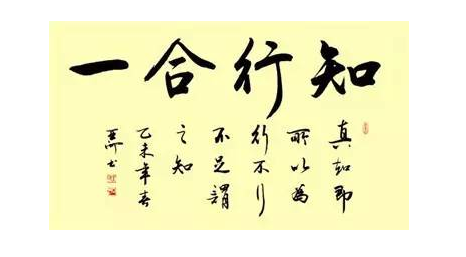 知行合一
真知即
所以為
行不行
不足謂
之知
乙未年春
书